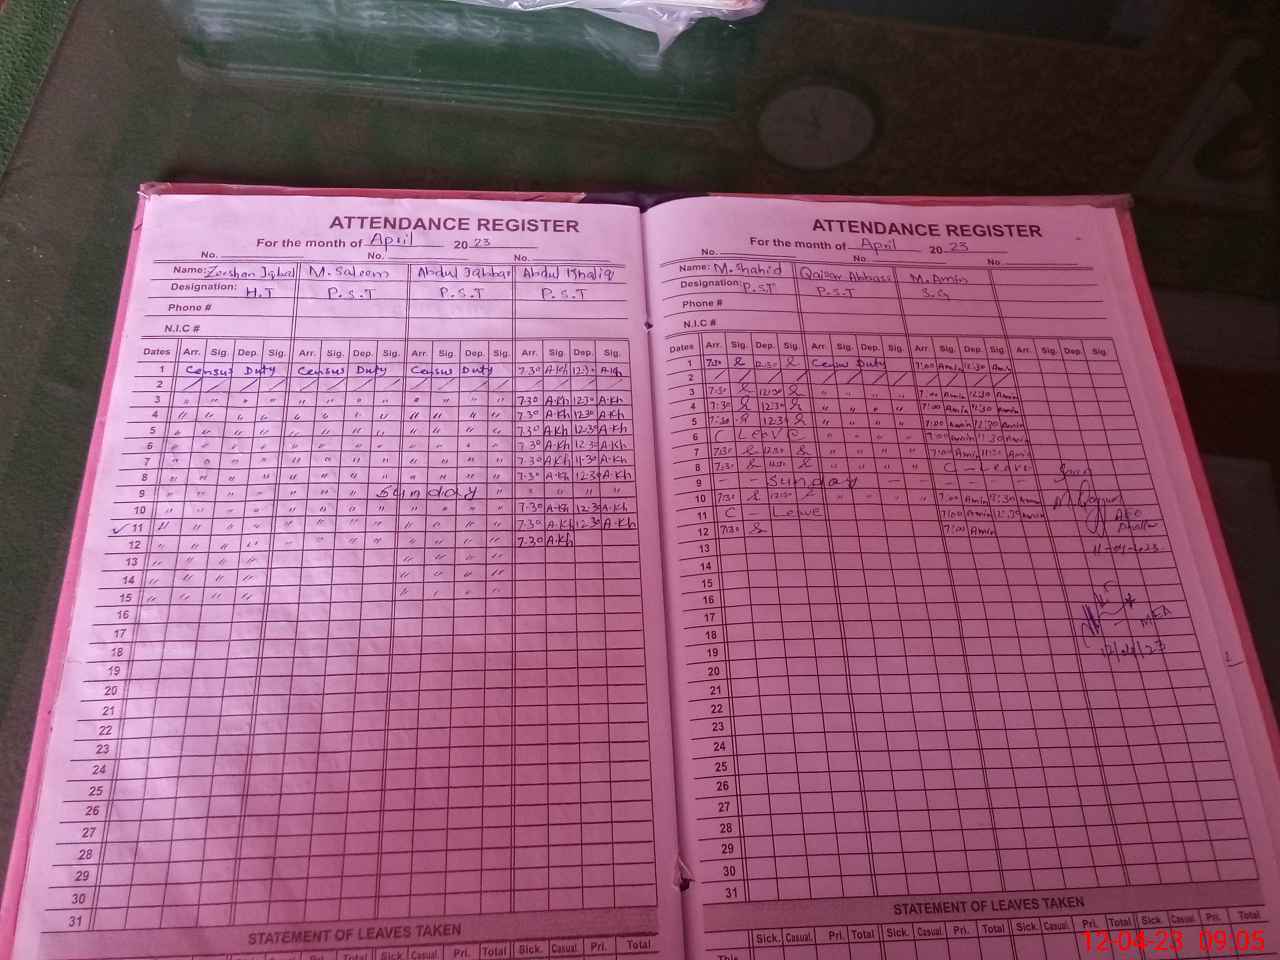 ATTENDANCE REGISTER
For the month of April 20 23
No. No. No.
Name: Zeeshan Iqbal M. Saleem Abdul Jabbar Abdul Khaliq
Designation: H.T P.S.T P.S.T P.S.T
Phone #
N.I.C #
Dates Arr. Sig. Dep. Sig. Arr. Sig. Dep. Sig. Arr. Sig. Dep. Sig. Arr. Sig. Dep. Sig.
1 Census Duty Census Duty Census Duty 7.30 A.Kh 12:30 A.Kh
2 / / / / / / / / / / / / / / / /
3 " " " " " " " " " " " " 7.30 A.Kh 12:30 A.Kh
4 " " " " " " " " " " " " 7.30 A.Kh 12:30 A.Kh
5 " " " " " " " " " " " " 7.30 A.Kh 12:30 A.Kh
6 " " " " " " " " " " " " 7.30 A.Kh 12:30 A.Kh
7 " " " " " " " " " " " " 7.30 A.Kh 11:30 A.Kh
8 " " " " " " " " " " " " 7.30 A.Kh 12:30 A.Kh
9 " " " " " " " Sunday " " " " "
10 " " " " " " " " " " " " 7.30 A.Kh 12:30 A.Kh
11 " " " " " " " " " " " " 7.30 A.Kh 12:30 A.Kh
12 " " " " " " " " " " " " 7.30 A.Kh
13 " " " " " " " "
14 " " " " " " " "
15 " " " " " " " "
16
17
18
19
20
21
22
23
24
25
26
27
28
29
30
31
STATEMENT OF LEAVES TAKEN
Sick. Casual. Pri. Total Sick. Casual. Pri. Total
ATTENDANCE REGISTER
For the month of April 20 23
No. No. No.
Name: M. Shahid Qaisar Abbass M. Amin
Designation: P.S.T P.S.T
Phone #
N.I.C #
Dates Arr. Sig. Dep. Sig. Arr. Sig. Dep. Sig. Arr. Sig. Dep. Sig. Arr. Sig. Dep. Sig.
1 7:30 12:30 Census Duty 7:00 Amin 12:30 Amin
2 / / / / / / / / / / / /
3 7:30 12:30 " " " " 7:00 Amin 12:30 Amin
4 7:30 12:30 " " " " 7:00 Amin 12:30 Amin
5 7:30 12:30 " " " " 7:00 Amin 12:30 Amin
6 C Leave " " " " 7:00 Amin 11:30 Amin
7 7:30 " " " " 7:00 Amin Amin
8 7:30 " " " " C - Leave
9 - - Sunday - - - - - -
10 7:30 12:30 " " 7:00 Amin 12:30 Amin
11 C - Leave 7:00 Amin 12:30 Amin
12 7:30 7:00 Amin
13
14
15
16
17
18
19
20
21
22
23
24
25
26
27
28
29
30
31
AEO
11-04-2023
MEA
12/04/23
STATEMENT OF LEAVES TAKEN
Sick. Casual. Pri. Total Sick. Casual. Pri. Total Sick. Casual. Pri. Total Sick. Casual. Pri. Total
This
12-04-23 09:05